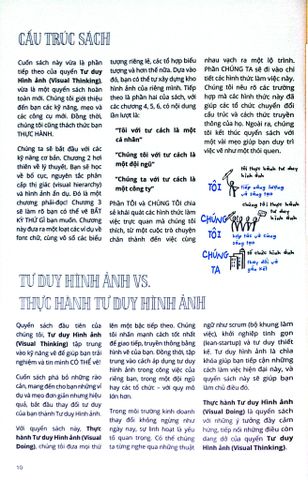 CẤU TRÚC SÁCH
Cuốn sách này vừa là phần
tiếp theo của quyển Tư duy
Hình ảnh (Visual Thinking),
vừa là một quyển sách hoàn
toàn mới. Chúng tôi giới thiệu
đến bạn các kỹ năng, mẹo và
các công cụ mới. Đồng thời,
chúng tôi cũng thách thức bạn
THỰC HÀNH.
Chúng ta sẽ bắt đầu với các
kỹ năng cơ bản. Chương 2 hơi
thiên về lý thuyết, bạn sẽ học
về bố cục, nguyên tắc phân
cấp thị giác (visual hierarchy)
và hình ảnh ẩn dụ. Đó là một
chương phải-đọc! Chương 3
sẽ làm rõ bạn có thể vẽ BẤT
KỲ THỨ GÌ bạn muốn. Chương
này đưa ra một loạt các ví dụ về
font chữ, cùng vô số các biểu
tượng riêng lẻ, các tổ hợp biểu
tượng và hơn thế nữa. Dựa vào
đó, bạn có thể tự xây dựng kho
hình ảnh của riêng mình. Tiếp
theo là phần hai của sách, với
các chương 4, 5, 6, có nội dung
lần lượt là:
"Tôi với tư cách là một
cá nhân"
"Chúng tôi với tư cách là
một đội ngũ"
"Chúng ta với tư cách là
một công ty"
Phần TÔI và CHÚNG TÔI chia
sẻ khái quát các hình thức làm
việc trực quan mà chúng tôi
thích, từ một cuộc trò chuyện
chân thành đến việc cùng
nhau vạch ra một lộ trình.
Phần CHÚNG TA sẽ đi vào chi
tiết các hình thức làm việc này.
Chúng tôi nêu rõ các trường
hợp mà các hình thức này đã
giúp các tổ chức chuyển đổi
cấu trúc và cách thức truyền
thông của họ. Ngoài ra, chúng
tôi kết thúc quyển sách với
một vài mẹo giúp bạn duy trì
việc vẽ như một thói quen.
TÔI
CHÚNG
TÔI
CHÚNG
TA
TƯ DUY HÌNH ẢNH VS.
THỰC HÀNH TƯ DUY HÌNH ẢNH
Quyển sách đầu tiên của
chúng tôi, Tư duy Hình ảnh
(Visual Thinking) tập trung
vào kỹ năng vẽ để giúp bạn trải
nghiệm và tin mình CÓ THỂ VẼ!
Cuốn sách phá bỏ những rào
cản, mang đến cho bạn những ví
dụ và mẹo đơn giản nhưng hiệu
quả, bắt đầu thay đổi tư duy
của bạn thành Tư duy Hình ảnh.
Với quyển sách này, Thực
hành Tư duy Hình ảnh (Visual
Doing), chúng tôi đưa mọi thứ
lên một bậc tiếp theo. Chúng
tôi nhấn mạnh cách tốt nhất
để giao tiếp, truyền thông bằng
hình vẽ của bạn. Đồng thời, tập
trung vào cách áp dụng tư duy
hình ảnh trong công việc của
riêng bạn, trong một đội ngũ
hay các tổ chức – với quy mô
lớn hơn.
Trong môi trường kinh doanh
thay đổi không ngừng như
ngày nay, sự linh hoạt là yếu
tố quan trọng. Có thể chúng
ta từng nghe qua những thuật
ngữ như scrum (bộ khung làm
việc), khởi nghiệp tinh gọn
(lean-startup) và tư duy thiết
kế. Tư duy hình ảnh là chìa
khóa giúp bạn tiếp cận những
cách làm việc hiện đại này, và
quyển sách này sẽ giúp bạn
làm chủ điều đó.
Thực hành Tư duy Hình ảnh
(Visual Doing) là quyển sách
với những ý tưởng đầy cảm
hứng, tiếp nối những điều còn
dang dở của quyển Tư duy
Hình ảnh (Visual Thinking).
10